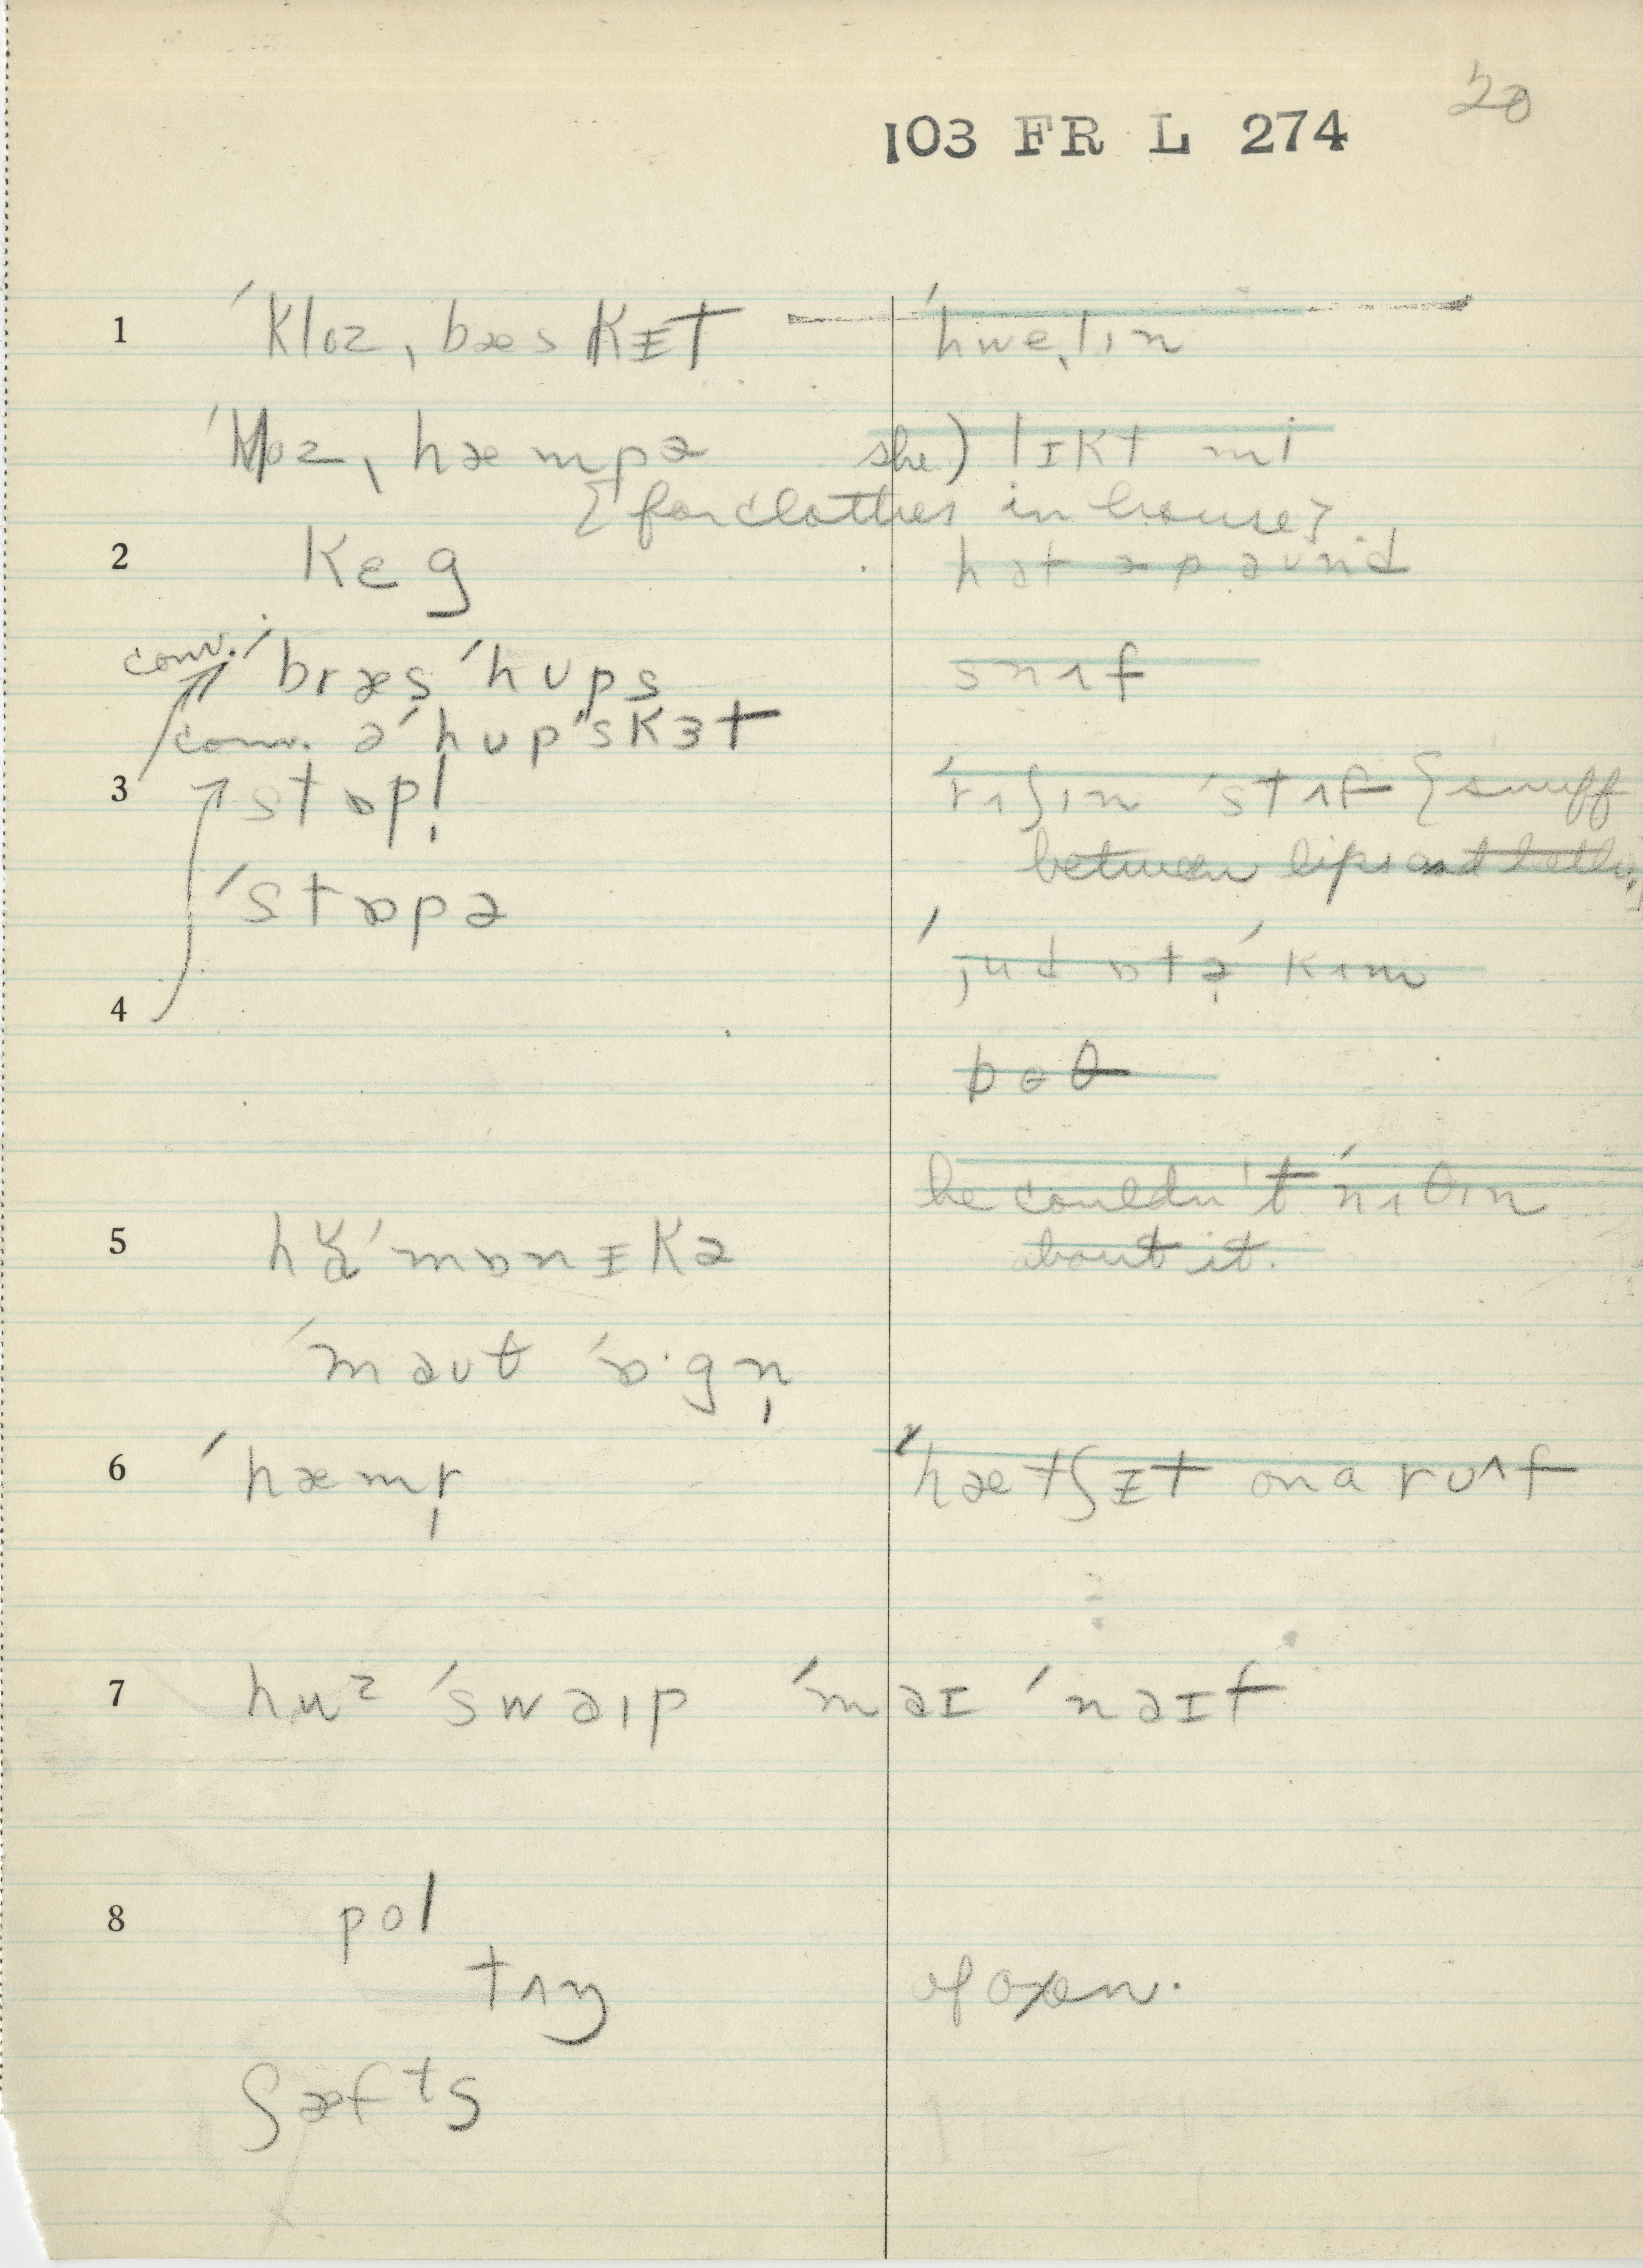 20
103 FR L 274
1 ˈkloz ˌbæskɪt — ˈhweˌlɪn
ˈkloz ˌhæmpə she) lɪkt mi
{for clothes in house}
2 keg hət əpaund
conv. ˈbræs ˈhups snʌf
conv. əˈhupˈskɜt
3 stɒpl̩ ˈrʌʃɪn ˈstʌf {snuff
between lips and teeth}
ˈstɒpə
ˈjud ɒtə ˈkʌm
4
boθ
he couldn't ˈnʌθɪn
5 hɑˈmɒnɪkə about it.
ˈmaut ˈɒ·gn̩
6 ˈhæmr̩ ˈhætʃɪt on a ruʌf
7 huz ˈswaɪp ˈmaɪ ˈnaɪf
8 pol
tʌŋ of oxen.
ʃæfts